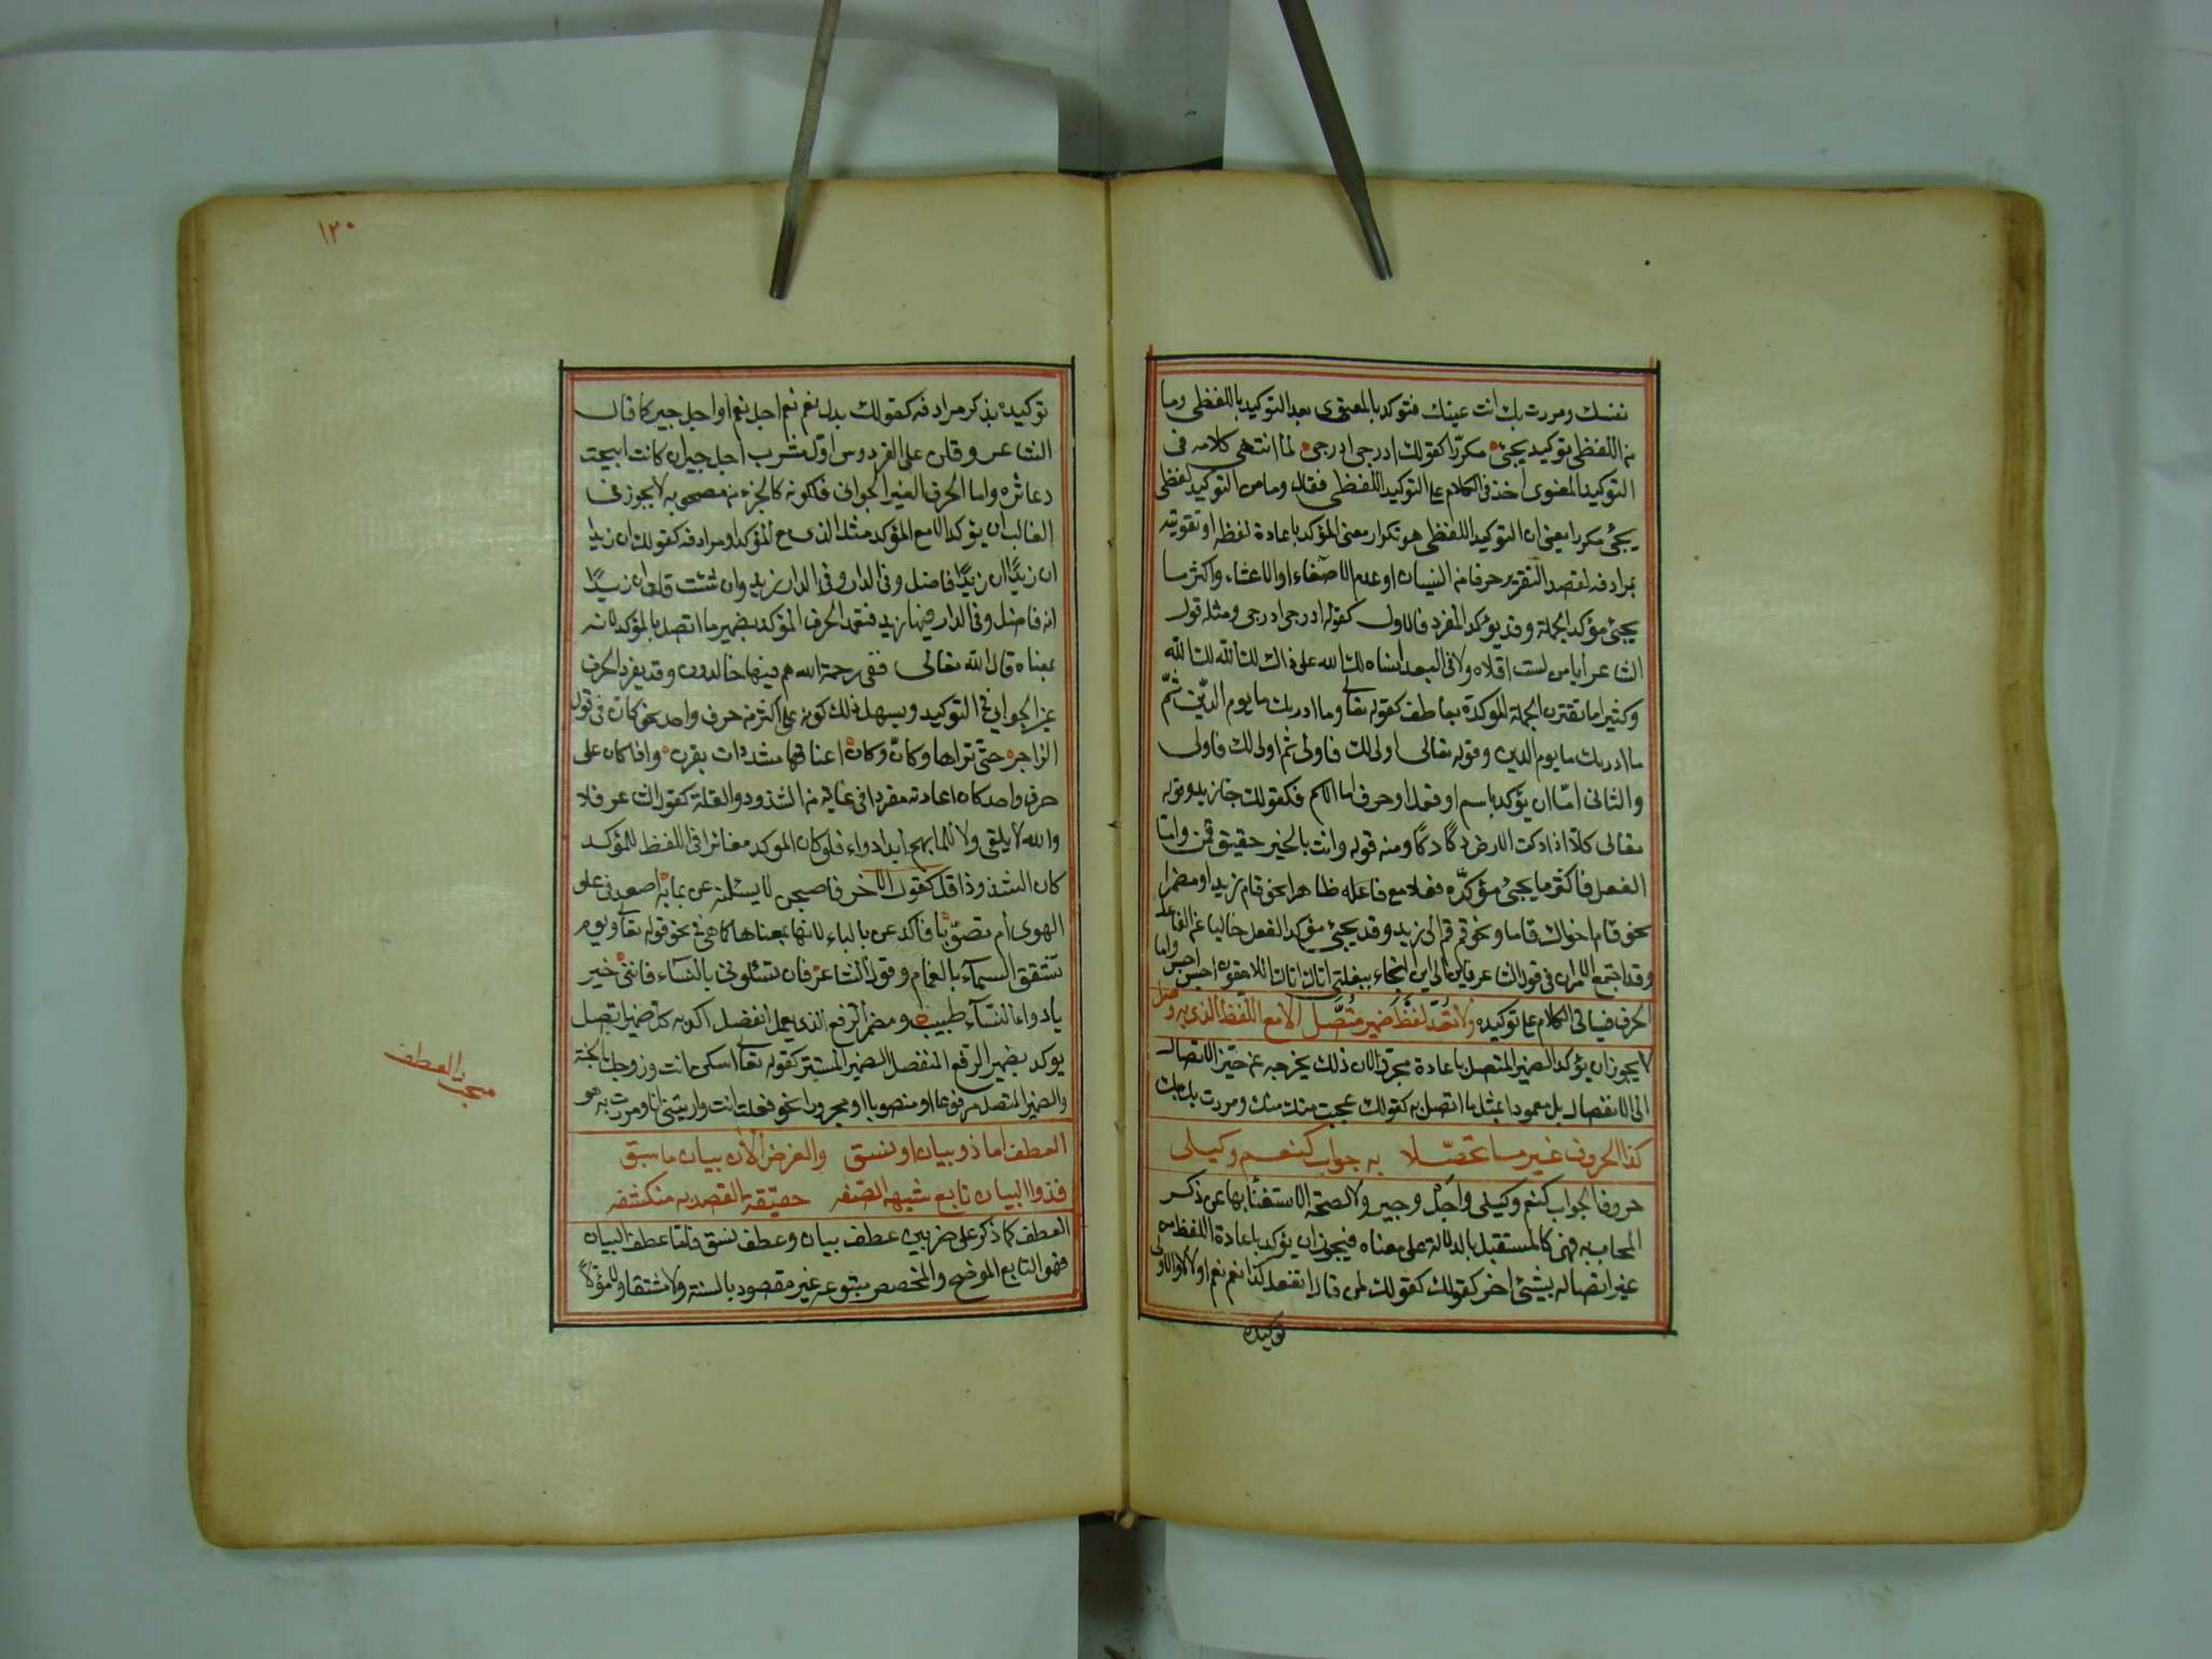 نفسك ومررت بك انت عينك فتوكد بالمعنوى بعد التوكيد باللفظى وما
من اللفظى توكيد يجئ مكررا كقولك ادرجى ادرجى لما انتهى كلامه فى
التوكيد المعنوى اخذ فى الكلام على التوكيد اللفظى فقال وما من التوكيد لفظى
يجئ مكررا يعنى ان التوكيد اللفظى هو تكرار معنى المؤكد باعادة لفظه او تقويته
بمرادفه لقصد التقرير خوفا من النسيان او عدم الاصغاء او الاعتناء واكثر ما
يجئ مؤكد الجملة وقد يؤكد المفرد فالاول كقوله ادرجى ادرجى ومثله قول
الشاعر ايا من لست اقلاه ولا فى البعد انساه لك الله على ذاك لك الله لك الله
وكثيرا ما تقترن الجملة الموكدة بعاطف كقوله تعالى وما ادريك ما يوم الدين ثم
ما ادريك ما يوم الدين وقوله تعالى اولى لك فاولى ثم اولى لك فاولى
والثانى اما ان يؤكد باسم او فعل او حرف اما الاسم فكقولك جا زيد وقوله
تعالى كلا اذا دكت الارض دكا دكا ومنه قوله وانت بالخير حقيق قمن واما
الفعل فاكثر ما يجئ مؤكده فعلا مع فاعله ظاهرا نحو قام زيد او مضمرا
نحو قام اخواك قاما ونحو قم قم الى زيد وقد يجئ مؤكد الفعل خاليا عن الفاعل
وقد اجتمع الامران فى قول الشاعر فاين الى اين النجاء ببغلتى اتاك اتاك اللاحقون احبس احبس واما
الحرف فياتى الكلام على توكيده ولا تعد لفظ ضمير متصل الا مع اللفظ الذى به وصل
لا يجوز ان يؤكد الضمير المتصل باعادة مجردا لان ذلك يخرجه عن حيز الاتصال
الى الانفصال بل معمودا بمثل ما اتصل به كقولك عجبت منك منك ومررت بك بك
كذا الحروف غير ما تحصلا به جواب كنعم وكبلى
حروف الجواب كنعم وكبلى واجل وجير ولا لصحة الاستغنا بها عن ذكر
المجاب به فهى كالمستقبل بالدلالة على معناه فيجوز ان يؤكد باعادة اللفظ من
غير اتصاله بشئ اخر كقولك كقولك لمن قال اتفعل كذا نعم نعم او لا لا والاولى
توكيده
١٢٠
توكيده بذكر مرادفه كقولك بدل نعم نعم اجل نعم او اجل جير كما قال
الشاعر وقلن على الفردوس اول مشرب اجل جير ان كانت ابيحت
دعاثره واما الحرف الغير الجوابى فلكونه كالجزء من مصحوبه لا يجوز فى
الغالب ان يؤكد الا مع المؤكد مثل الذى مع المؤكد او مرادفه كقولك ان زيدا
ان زيدا ان زيدا فاضل وفى الدار وفى الدار زيد وان شئت قلت ان زيدا
انه فاضل وفى الدار فيها زيد فتعمد الحرف المؤكد بضمير ما اتصل بالمؤكد لانه
بمعناه قال الله تعالى ففى رحمة الله هم فيها خالدون وقد يفرد الحرف
غير الجوابى فى التوكيد ويسهل ذلك كونه على اكثر من حرف واحد نحو كان فى قول
الراجز حتى تراها وكان وكان اعناقها مشددات بقرن واذا كان على
حرف واحد كان اعادته مفردا فى غاية من الشذوذ والقلة كقول الشاعر فلا
والله لا يلقى ولا للما بهم ابدا دواء فلو كان الموكد مغايرا فى اللفظ للمؤكد
كان الشذوذ اقل كقول الاخر فاصبحن لا يسئلنه عن بما به اصعد فى علو
الهوى ام تصوبا فاكد عن بالباء لانها بمعناها كما هى فى نحو قوله تعالى ويوم
تشقق السماء بالغمام وقول الشاعر فان تسئلونى بالنساء فاننى خبير
بادواء النساء طبيب ومضمر الرفع الذى يعمل انفصل اكد به كل ضمير اتصل
يوكد بضمير الرفع المنفصل الضمير المستتر كقوله تعالى اسكن انت وزوجك الجنة
والضمير المتصل مرفوعا او منصوبا او مجرورا نحو فعلت انت ورايتنى انا ومررت به هو
مبحث العطف
العطف اما ذو بيان او نسق والغرض الان بيان ما سبق
فذو البيان تابع شبيه الصفه حقيقة القصد به منكشفه
العطف كما ذكر على ضربين عطف بيان وعطف نسق فاما عطف البيان
فهو التابع الموضح والمخصص متبوعه غير مقصود بالنسبة ولا مشتقا ولا مؤولا